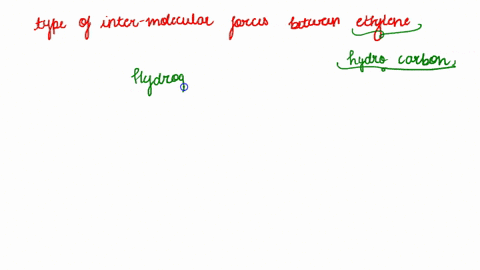 type of inter-molecular forces between ethylene,
hydro carbon,
Hydrog